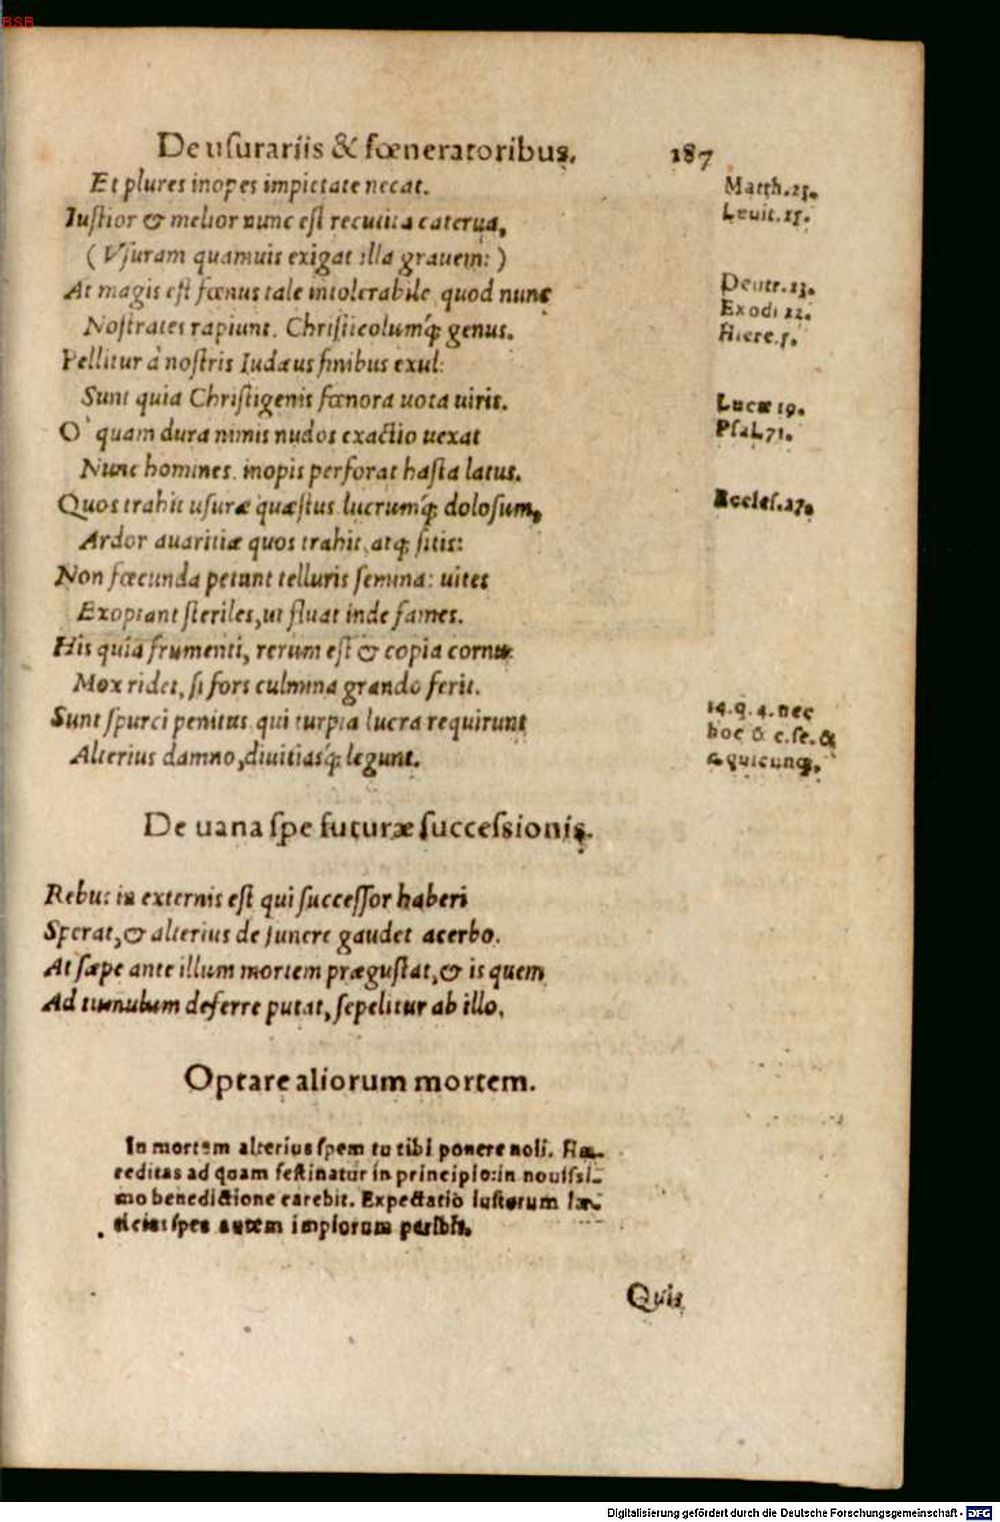 BSB
De uſurariis & fœneratoribus. 187
Et plures inopes impietate necat. Matth.25.
Iuſtior & melior nunc eſt recutita caterua, Leuit.25.
( Vſuram quamuis exigat illa grauem: )
At magis eſt fœnus tale intolerabile, quod nunc Deutr.23.
Exodi 22.
Noſtrates rapiunt, Chriſticolumq́; genus. Hiere.5.
Pellitur à noſtris Iudæus finibus exul:
Sunt quia Chriſtigenis fœnora uota uiris. Lucæ 19.
O quam dura nimis nudos exactio uexat Pſal.71.
Nunc homines, inopis perforat haſta latus.
Quos trahit uſuræ quæſtus, lucrumq́; doloſum, Eccleſ.27.
Ardor auaritiæ quos trahit, atq; ſitis:
Non fœcunda petunt telluris ſemina: uites
Exoptant ſteriles, ut fluat inde fames.
His quia frumenti, rerum eſt & copia cornu
Mox ridet, ſi fors culmina grando ferit.
Sunt ſpurci penitus, qui turpia lucra requirunt 14.q.4.nec
hoc & c.ſe.&
Alterius damno, diuitiasq́; legunt. c.quicunq;.
De uana ſpe futuræ ſucceſsionis.
Rebus in externis eſt qui ſucceſſor haberi
Sperat, & alterius de funere gaudet acerbo.
At ſæpe ante illum mortem præguſtat, & is quem
Ad tumulum deferre putat, ſepelitur ab illo.
Optare aliorum mortem.
In mortem alterius ſpem tu tibi ponere noli. Hæ-
reditas ad quam feſtinatur in principio: in nouiſsi-
mo benedictione carebit. Expectatio iuſtorum læ-
ticia: ſpes autem impiorum peribit.
Quis
Digitalisierung gefördert durch die Deutsche Forschungsgemeinschaft - DFG